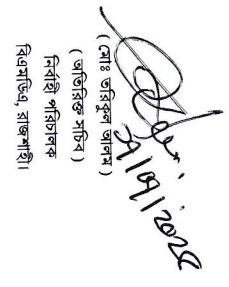 (মোঃ তরিকুল আলম)
(অতিরিক্ত সচিব)
নির্বাহী পরিচালক
বিএমডিএ, রাজশাহী।